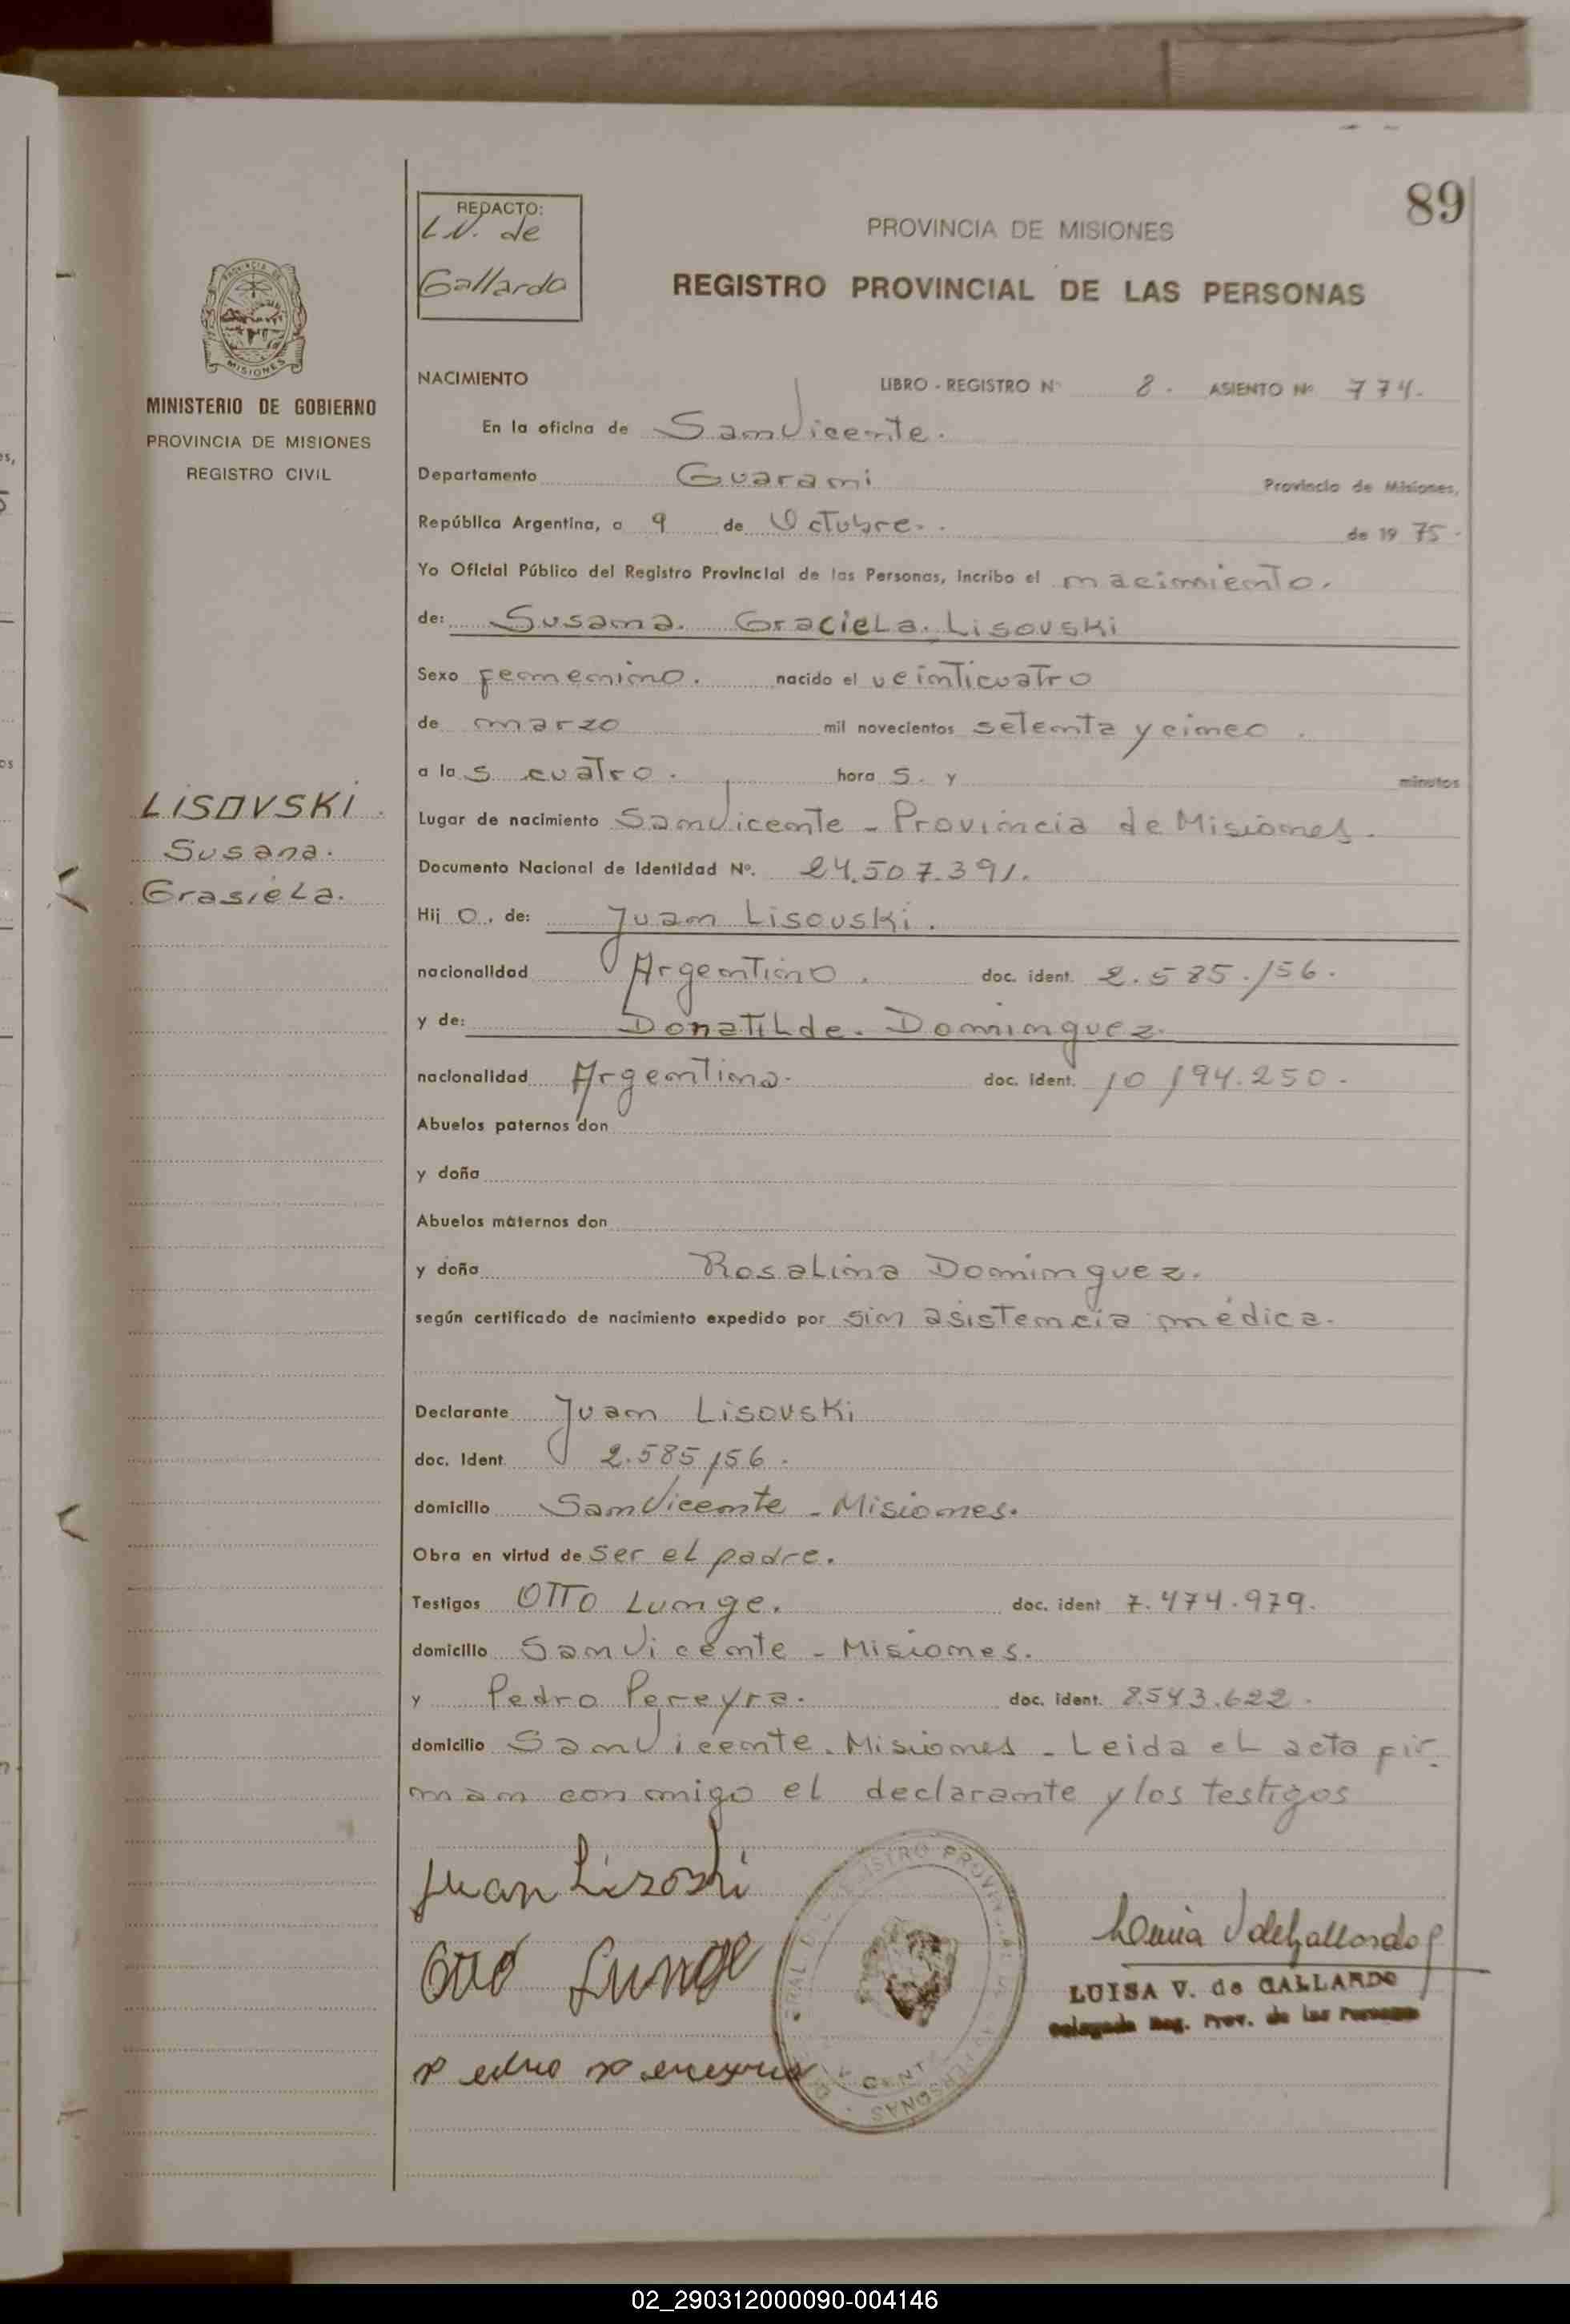 89
REDACTO:
L.V. de
Gallardo
PROVINCIA DE MISIONES
REGISTRO PROVINCIAL DE LAS PERSONAS
PROVINCIA DE
MISIONES
MINISTERIO DE GOBIERNO
PROVINCIA DE MISIONES
REGISTRO CIVIL
LISOVSKI.
Susana.
Grasiela.
NACIMIENTO LIBRO - REGISTRO Nº 8. ASIENTO Nº 774.
En la oficina de San Vicente.
Departamento Guarani Provincia de Misiones,
República Argentina, a 9 de Octubre. de 1975.
Yo Oficial Público del Registro Provincial de las Personas, incribo el nacimiento.
de: Susana. Graciela. Lisovski
Sexo femenino. nacido el veinticuatro
de marzo mil novecientos setenta y cinco.
a las cuatro. hora s. y minutos
Lugar de nacimiento San Vicente - Provincia de Misiones.
Documento Nacional de Identidad Nº. 24.507.391.
Hij o. de: Juan Lisovski.
nacionalidad Argentino. doc. ident. 2.585.156.
y de: Donatilde. Dominguez.
nacionalidad Argentina. doc. ident. 10 194.250.
Abuelos paternos don
y doña
Abuelos maternos don
y doña Rosalina Dominguez.
según certificado de nacimiento expedido por sin asistencia médica.
Declarante Juan Lisovski
doc. Ident. 2.585 156.
domicilio San Vicente - Misiones.
Obra en virtud de ser el padre.
Testigos Otto Lunge. doc. ident 7.474.979.
domicilio San Vicente - Misiones.
y Pedro Pereyra. doc. ident. 8.543.622.
domicilio San Vicente. Misiones - Leida el acta fir-
man con migo el declarante y los testigos
Juan Lisoski
Otto Lunge
Pedro Pereyra
Luisa V de Gallardo
LUISA V. de GALLARDO
Delegada Reg. Prov. de las Personas
02_290312000090-004146